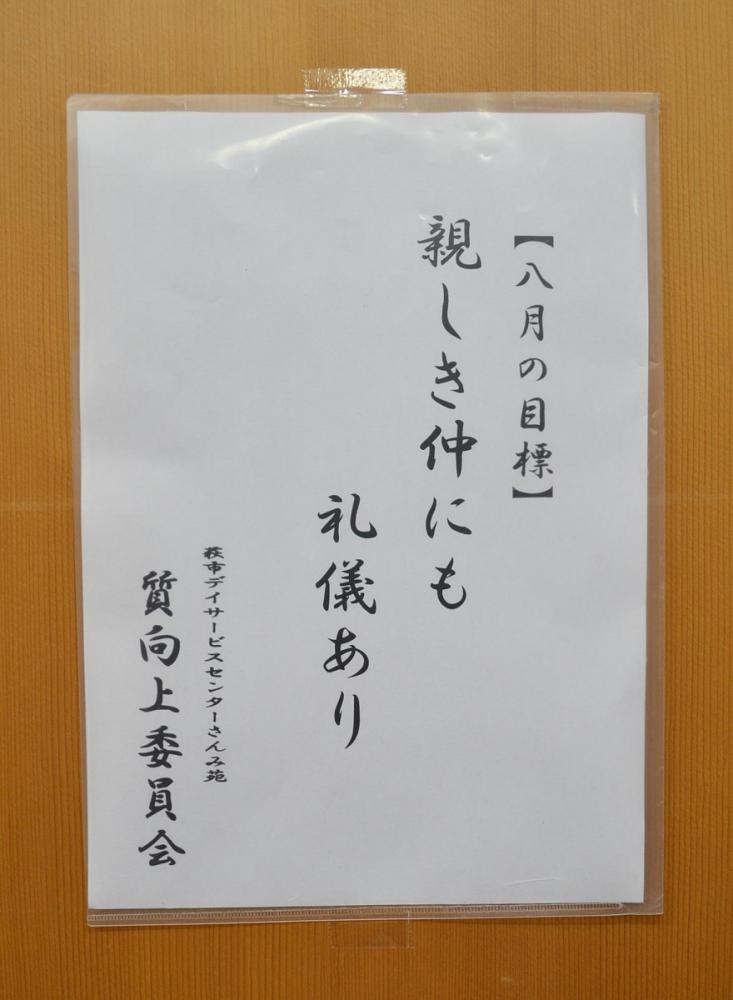 【八月の目標】
親しき仲にも
礼儀あり
萩市デイサービスセンターさんみ苑
質向上委員会